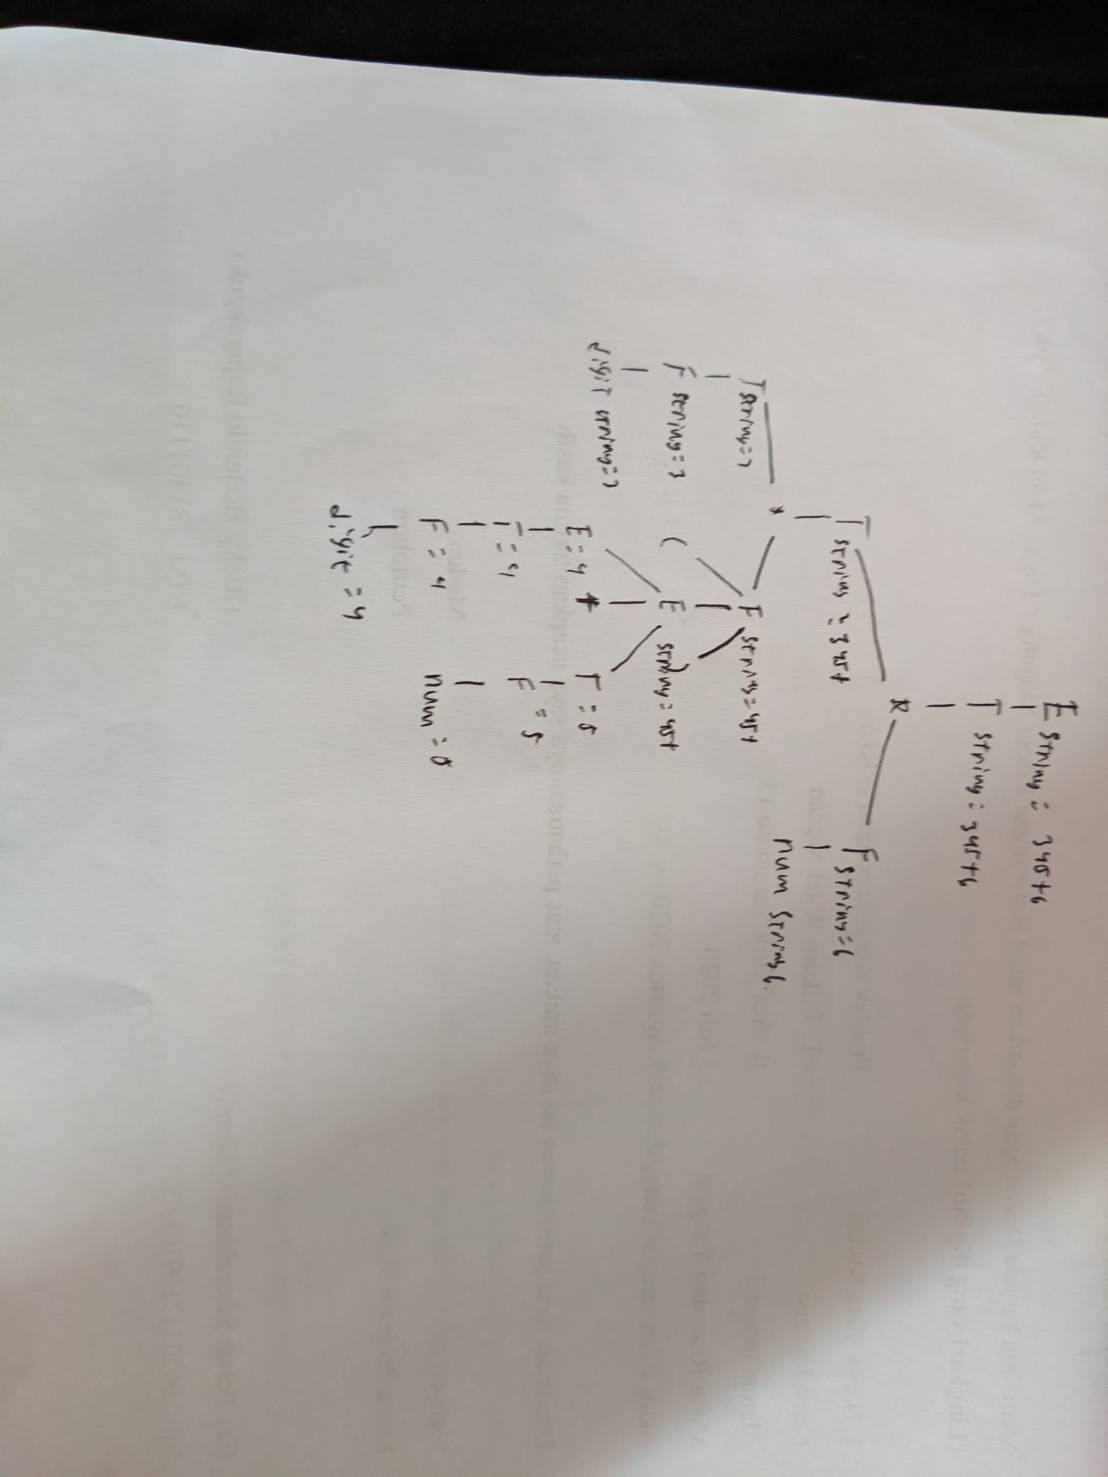 E string = 345+6
T string = 345+6
*
T string = 345+
F string=6
num string 6.
*
T string=3
F string=45+
F string=3
(
E string=45+
)
digit string=3
E=4
+
T=5
T=4
F=5
F=4
num=5
digit=4